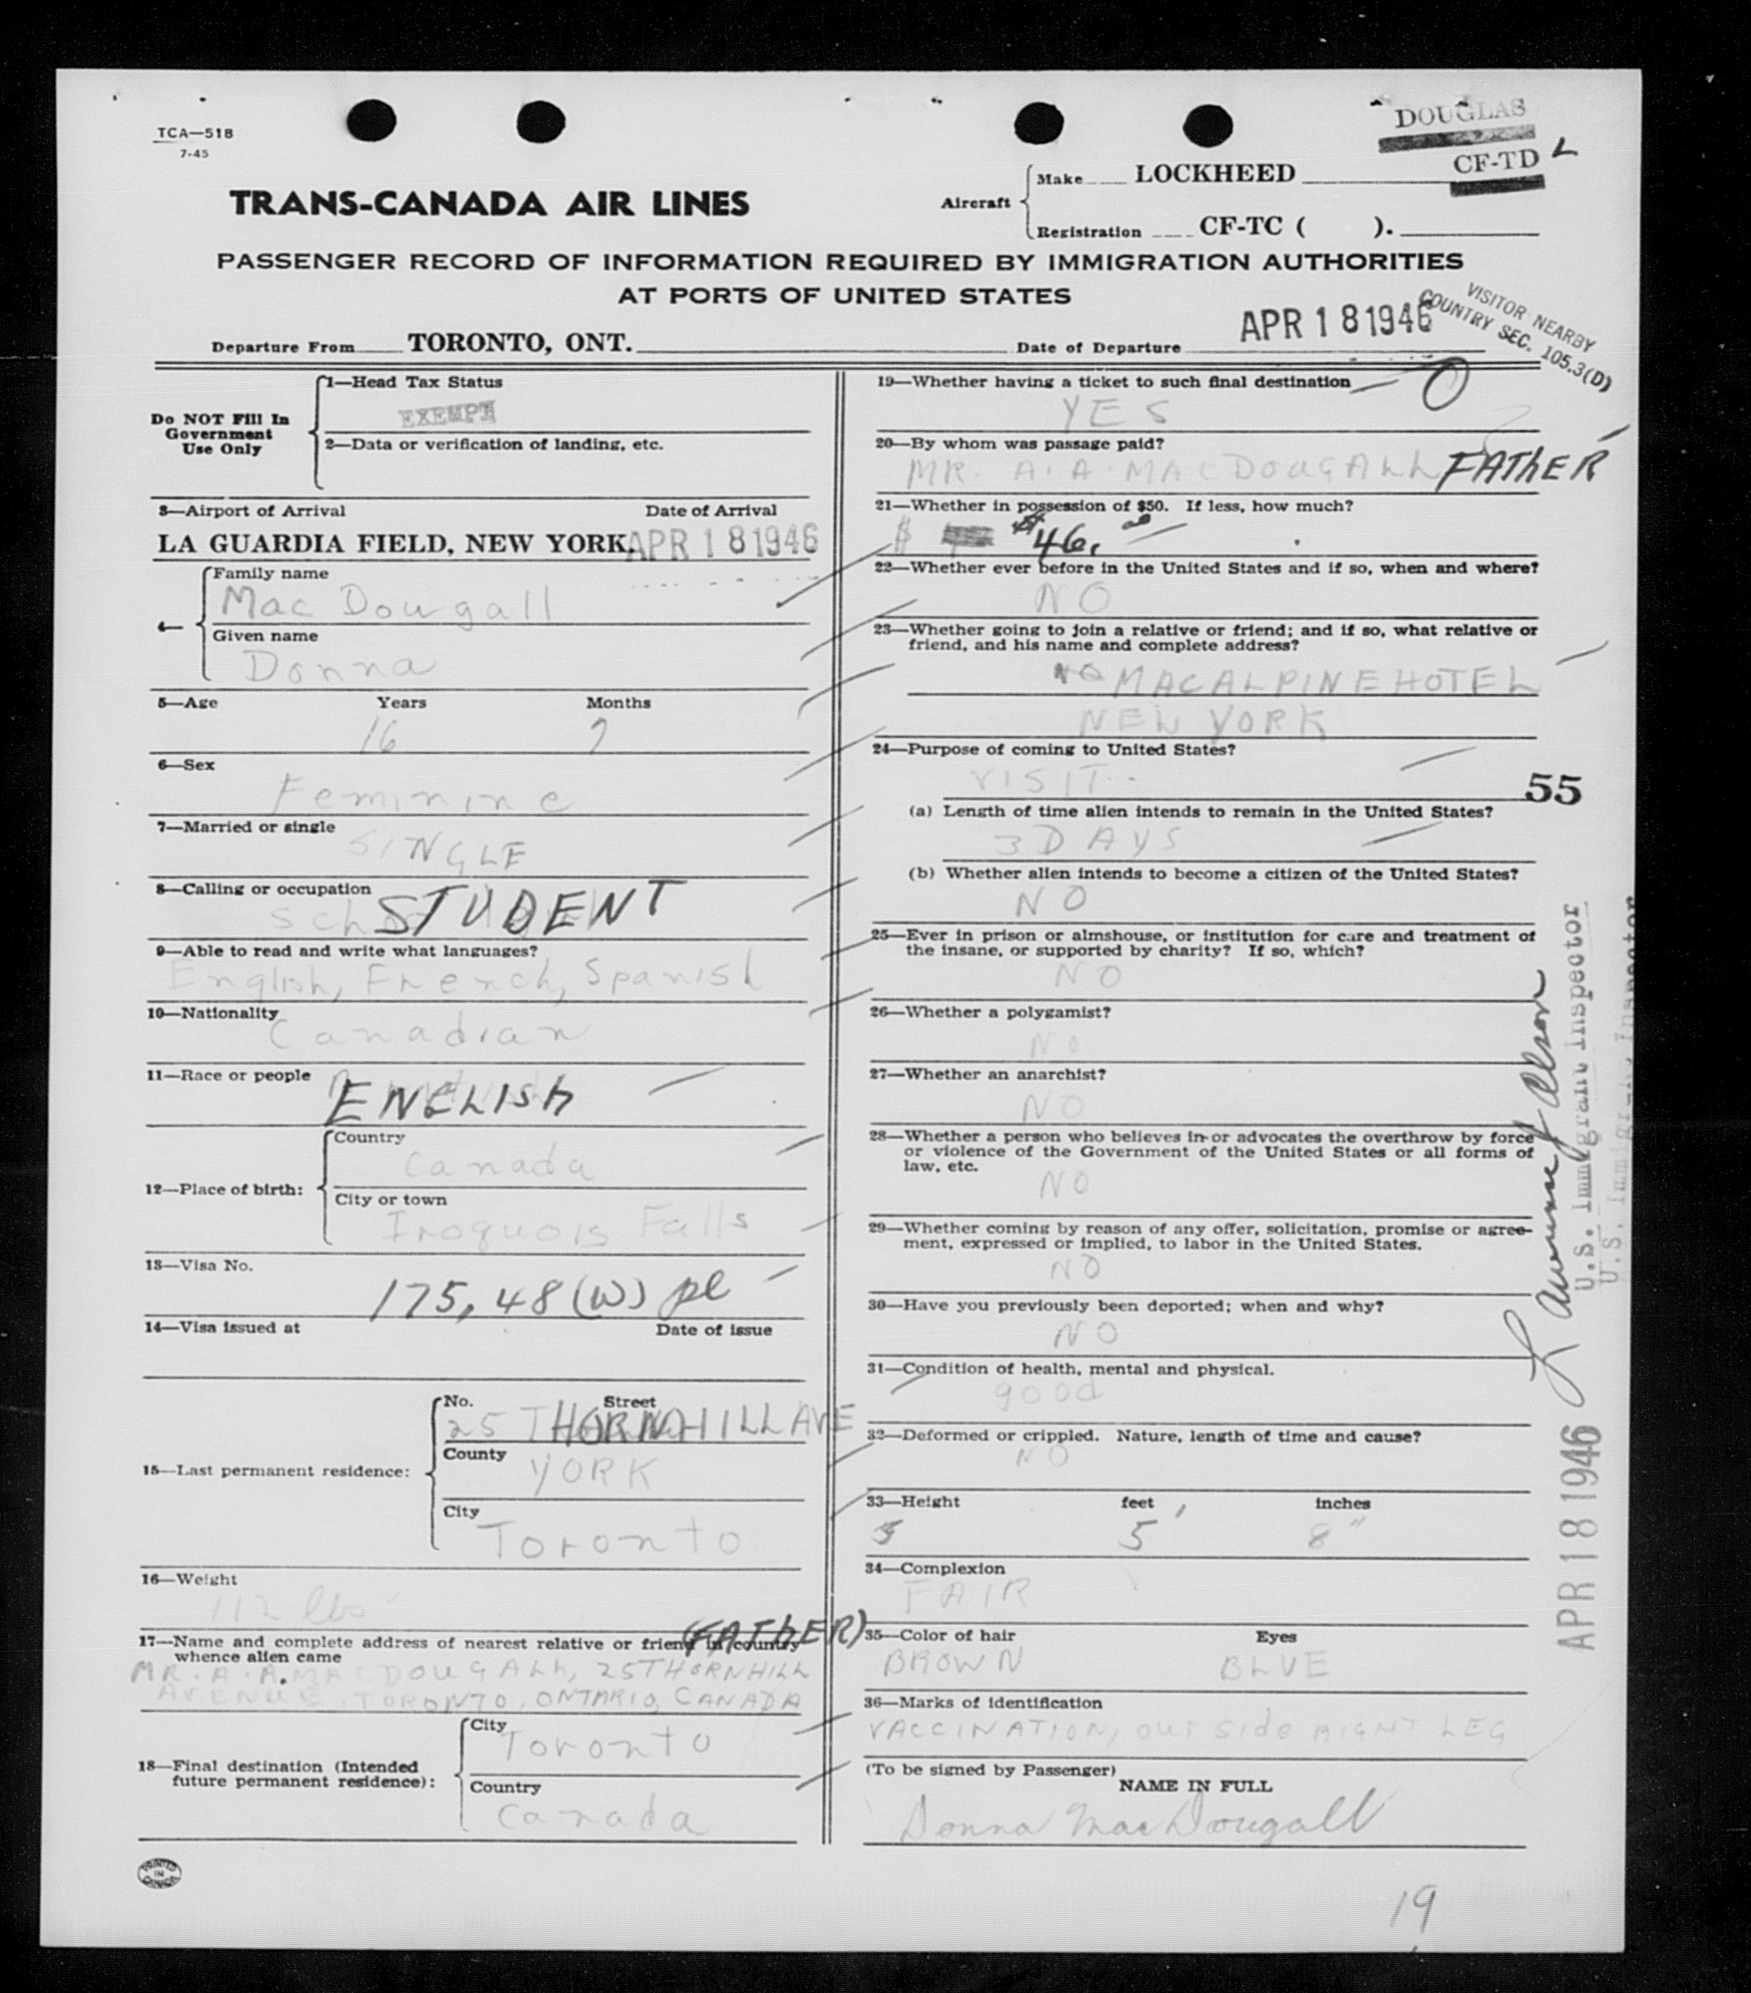 TCA—518
7-45
DOUGLAS
CF-TD L
TRANS-CANADA AIR LINES
Aircraft
Make LOCKHEED
Registration CF-TC ( ).
PASSENGER RECORD OF INFORMATION REQUIRED BY IMMIGRATION AUTHORITIES
AT PORTS OF UNITED STATES
VISITOR NEARBY
COUNTRY SEC. 105.3(D)
Departure From TORONTO, ONT. Date of Departure APR 18 1946
Do NOT Fill In
Government
Use Only
1—Head Tax Status
EXEMPT
2—Data or verification of landing, etc.
3—Airport of Arrival Date of Arrival
LA GUARDIA FIELD, NEW YORK APR 18 1946
4—
Family name
Mac Dougall
Given name
Donna
5—Age Years Months
16 7
6—Sex
Feminine
7—Married or single
SINGLE
8—Calling or occupation
STUDENT
9—Able to read and write what languages?
English, French, Spanish
10—Nationality
Canadian
11—Race or people
ENGLISh
12—Place of birth:
Country
Canada
City or town
Iroquois Falls
13—Visa No.
175,48 (W) pl
14—Visa issued at Date of issue
15—Last permanent residence:
No. Street
25 THORNHILL AVE
County
YORK
City
Toronto
16—Weight
112 lbs
17—Name and complete address of nearest relative or friend in country
whence alien came
(FAThER)
MR. A. A. MACDOUGALL, 25 THORNHILL
AVENUE, TORONTO, ONTARIO, CANADA
18—Final destination (Intended
future permanent residence):
City
Toronto
Country
Canada
PRINTED
IN
CANADA
19—Whether having a ticket to such final destination
YES
20—By whom was passage paid?
MR. A. A. MACDOUGALL FAThER
21—Whether in possession of $50. If less, how much?
$ $46.00
22—Whether ever before in the United States and if so, when and where?
NO
23—Whether going to join a relative or friend; and if so, what relative or
friend, and his name and complete address?
NO MACALPINE HOTEL
NEW YORK
24—Purpose of coming to United States?
VISIT
55
(a) Length of time alien intends to remain in the United States?
3 DAYS
(b) Whether alien intends to become a citizen of the United States?
NO
25—Ever in prison or almshouse, or institution for care and treatment of
the insane, or supported by charity? If so, which?
NO
26—Whether a polygamist?
NO
27—Whether an anarchist?
NO
28—Whether a person who believes in or advocates the overthrow by force
or violence of the Government of the United States or all forms of
law, etc.
NO
29—Whether coming by reason of any offer, solicitation, promise or agree-
ment, expressed or implied, to labor in the United States.
NO
30—Have you previously been deported; when and why?
NO
31—Condition of health, mental and physical.
good
32—Deformed or crippled. Nature, length of time and cause?
NO
33—Height feet inches
5 5' 8"
34—Complexion
FAIR
35—Color of hair Eyes
BROWN BLUE
36—Marks of identification
VACCINATION, outside RIGHT LEG
(To be signed by Passenger)
NAME IN FULL
Donna MacDougall
U.S. Immigrant Inspector
U.S. Immigrant Inspector
APR 18 1946
19